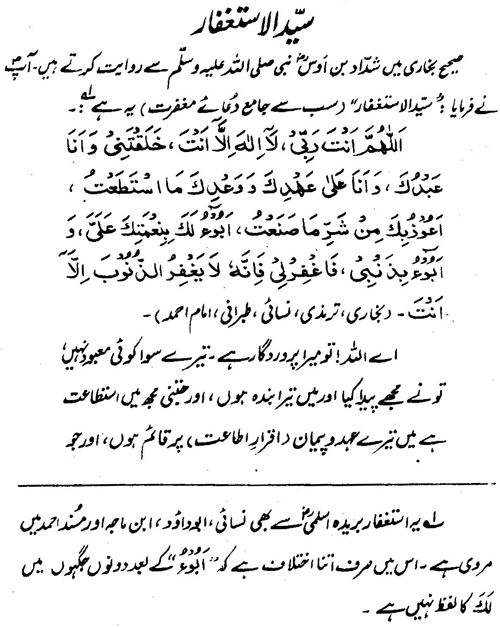 سیّد الاستغفار
صحیح بخاری میں شدّاد بن اَوسؓ نبی صلی اللہ علیہ وسلّم سے روایت کرتے ہیں۔ آپؐ
نے فرمایا: "سیّد الاستغفار" (سب سے جامع دُعائے مغفرت) یہ ہے لہ:۔
اَللّٰهُمَّ اَنْتَ رَبِّیْ، لَآ اِلٰهَ اِلَّآ اَنْتَ، خَلَقْتَنِیْ وَ اَنَا
عَبْدُكَ، وَ اَنَا عَلٰی عَهْدِكَ وَ وَعْدِكَ مَا اسْتَطَعْتُ،
اَعُوْذُبِكَ مِنْ شَرِّ مَا صَنَعْتُ، اَبُوْٓءُ لَكَ بِنِعْمَتِكَ عَلَیَّ، وَ
اَبُوْٓءُ بِذَنْۢبِیْ، فَاغْفِرْلِیْ فَاِنَّهٗ لَا یَغْفِرُ الذُّنُوْبَ اِلَّآ
اَنْتَ۔ (بخاری، ترمذی، نسائی، طبرانی، امام احمد)۔
اے اللہ! تو میرا پروردگار ہے۔ تیرے سوا کوئی معبود نہیں؛
تو نے مجھے پیدا کیا اور میں تیرا بندہ ہوں، اور جتنی مجھ میں استطاعت
ہے میں تیرے عہد و پیمان (اقرارِ اطاعت) پر قائم ہوں، اور جو
لہ یہ استغفار بریدہ اسلمیؓ سے بھی نسائی، ابوداؤد، ابن ماجہ اور مُسند احمد میں
مروی ہے۔ اس میں صرف اتنا اختلاف ہے کہ "اَبُوْءُ" کے بعد دونوں جگہوں میں
لَكَ کا لفظ نہیں ہے۔